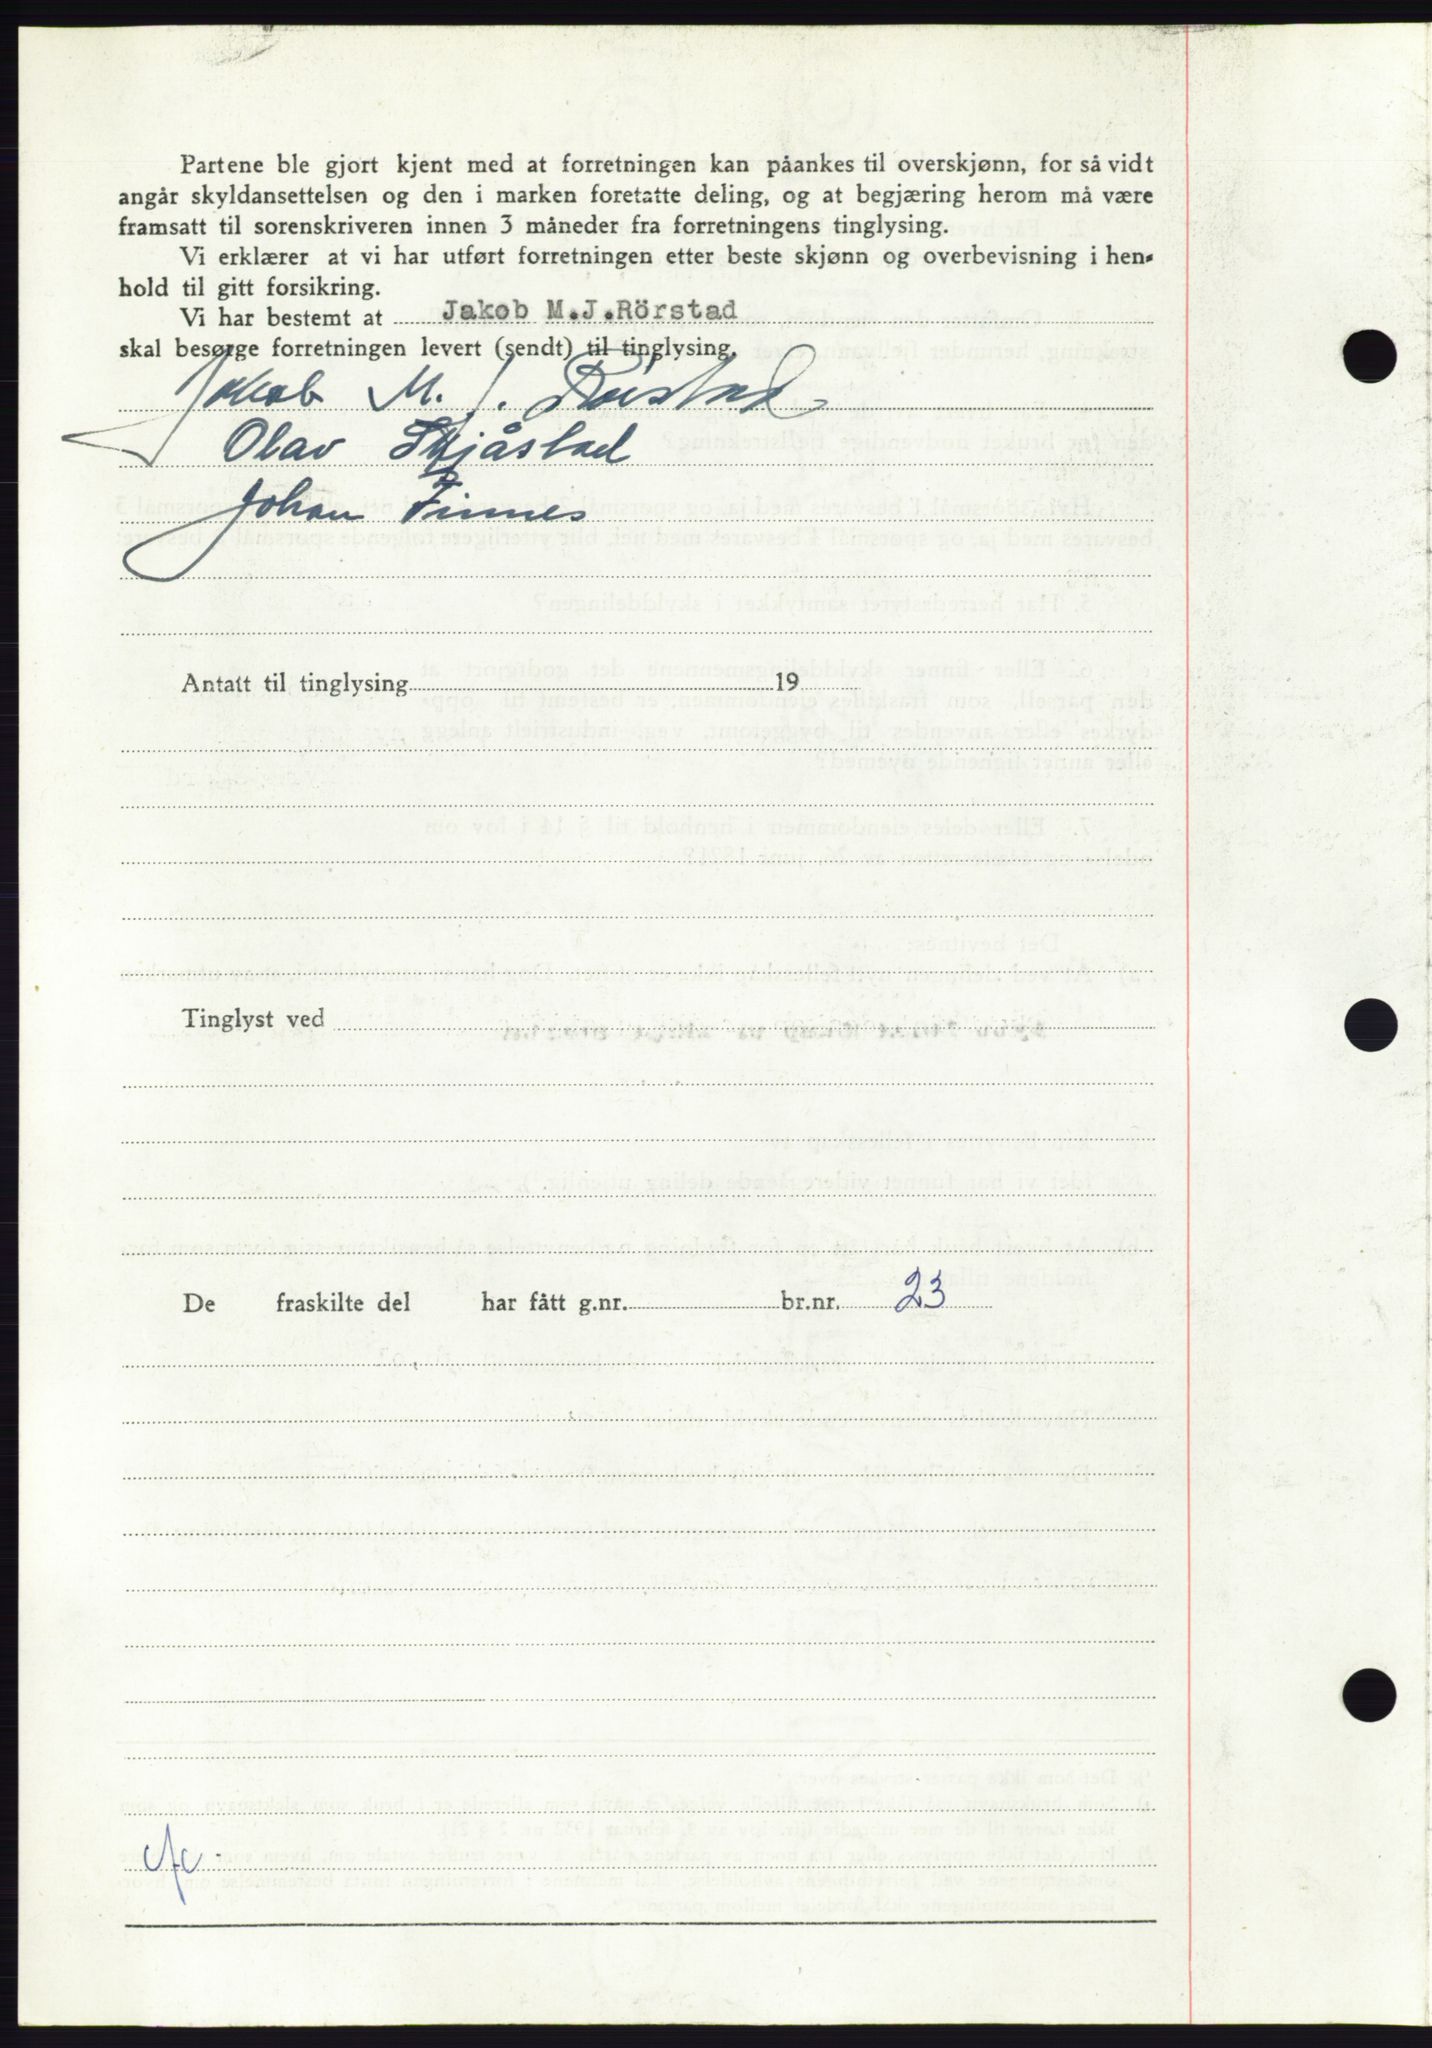 Partene ble gjort kjent med at forretningen kan påankes til overskjønn, for så vidt
angår skyldansettelsen og den i marken foretatte deling, og at begjæring herom må være
framsatt til sorenskriveren innen 3 måneder fra forretningens tinglysing.
Vi erklærer at vi har utført forretningen etter beste skjønn og overbevisning i hen-
hold til gitt forsikring.
Vi har bestemt at Jakob M.J.Rörstad
skal besørge forretningen levert (sendt) til tinglysing.
Jakob M. J. Rörstad
Olav Skjåstad
Johan Finnes
Antatt til tinglysing 19
Tinglyst ved
De fraskilte del har fått g.nr. br.nr. 23